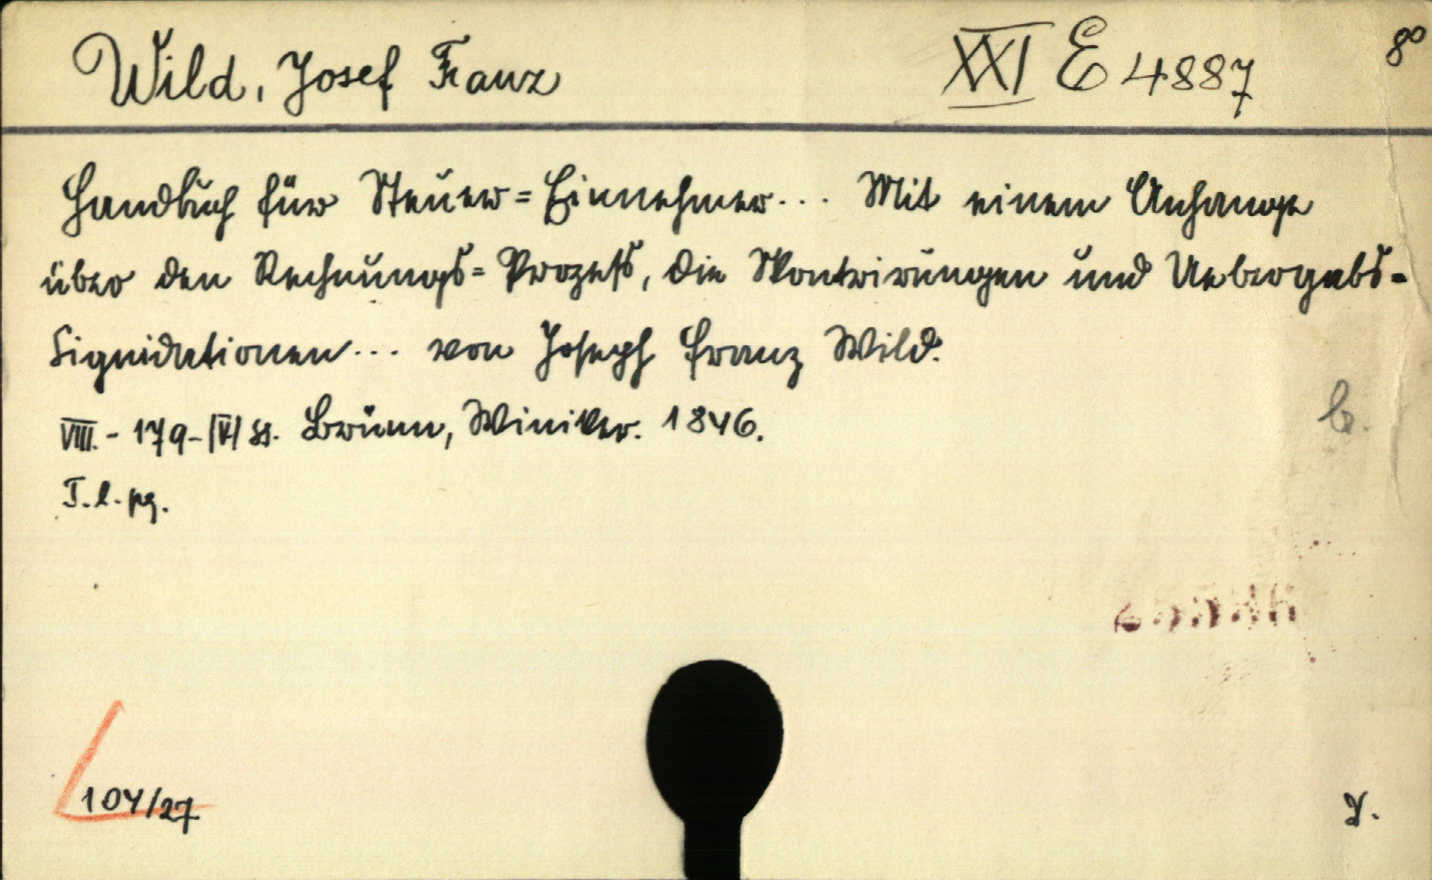 Wild, Josef Franz XXI E 4887 8°
Handbuch für Steuer=Einnehmer... Mit einem Anhange
über den Rechnungs=Prozess, die Skontrirungen und Uebergabs-
Liquidationen... von Joseph Franz Wild.
VIII.-179-|V| SS. Brünn, Winiker. 1846.
b.
T. l. pg.
104/27